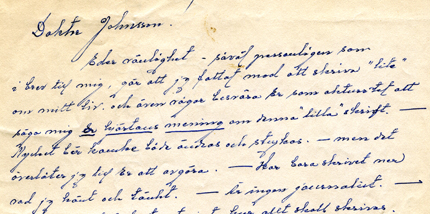 Doktor Johnsson.
Eder vänlighet - såväl personligen som
i brev till mig, gör att jag fattat mod att skriva "lite"
om mitt liv. och även vågar besvära Er som akterstet att
säga mig Er hjärtans mening om denna "lilla" skrift. —
Mycket bör kanske både ändras och strykas. — men det
överlåter jag till Er att avgöra. — Har bara skrivit ner
vad jag känt och tänkt. — Är ingen journalist. —
allt skall skrivas.